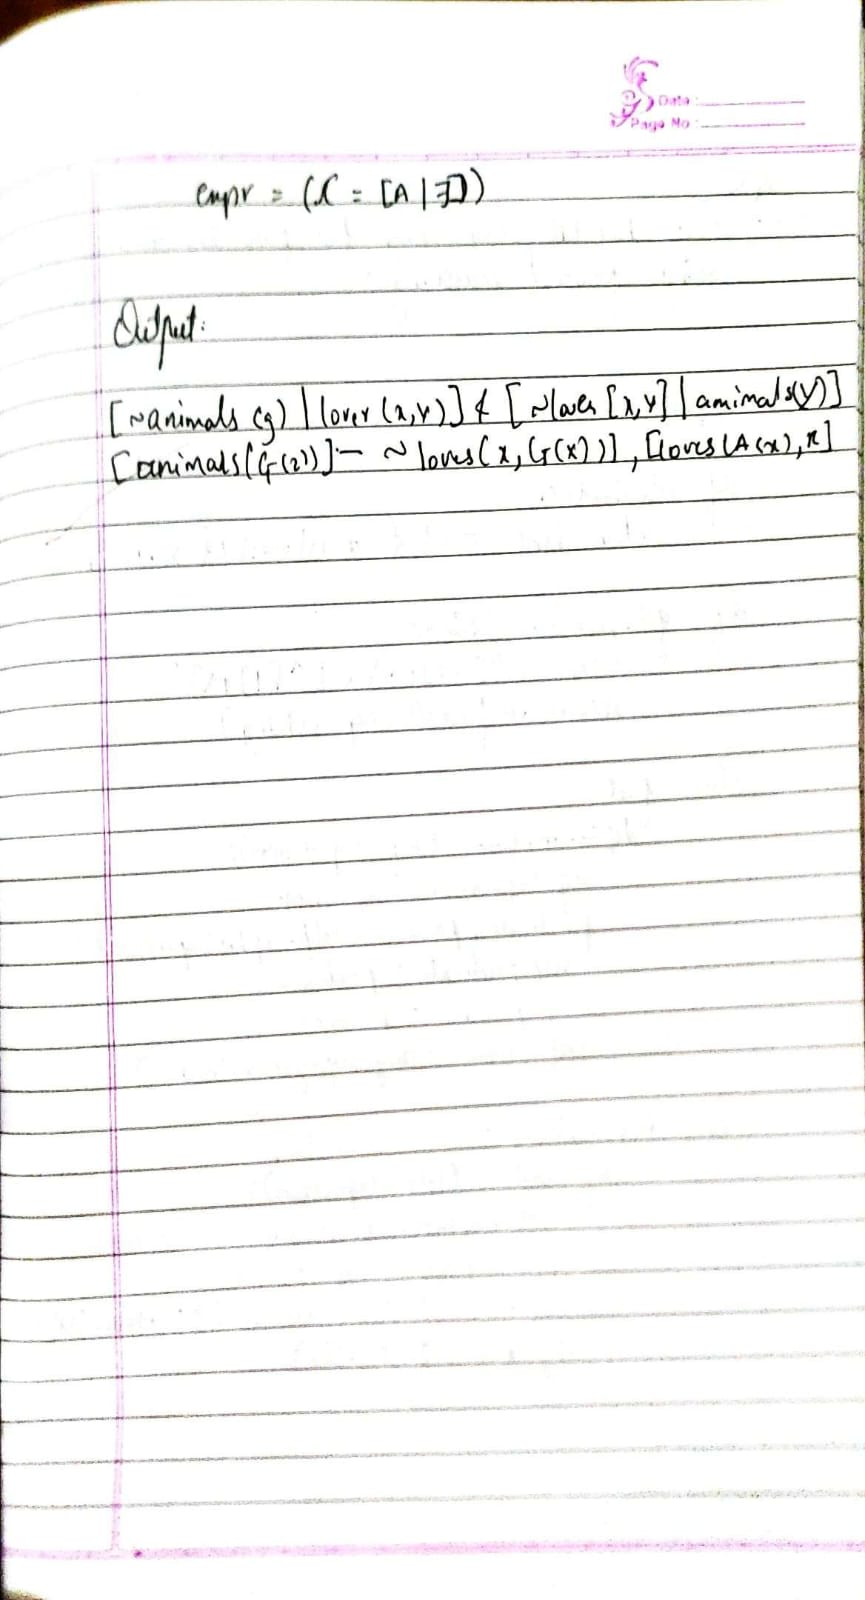 Date :
Page No :
expr = (X = [A | ∃])
Output:
[~animals (g) | lover (x,y)] & [~loves [x,y] | animals(y)]
[animals(G(2))] - ~loves(x, G(x))], [loves(A(x), x]